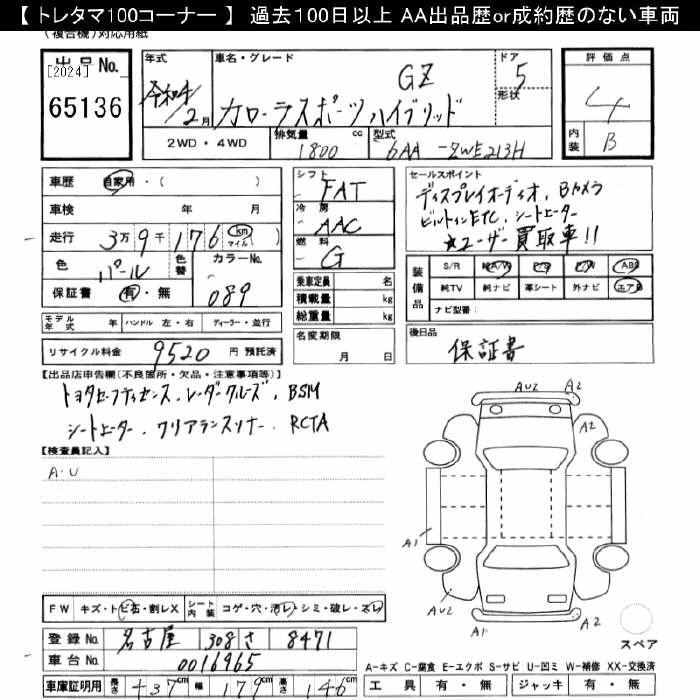 【 トレタマ100コーナー 】 過去100日以上 AA出品歴or成約歴のない車両
(複合機)対応用紙
出品 No.
[2024]
65136
年式
令和4
2月
車名・グレード
GZ
カローラスポーツハイブリッド
ドア
5
形状
2WD ・ 4WD
排気量 cc
1800
型式
6AA -ZWE213H
評価点
4
内装
B
車歴 自家用 ・( )
車検 年 月
走行 3万9千176 (km マイル)
色 パール 色替 カラーNo. 089
保証書 有・無
シフト FAT
冷房 AAC
燃料 G
乗車定員 名
積載量 kg
総重量 kg
名変期限
月 日
セールスポイント
ディスプレイオーディオ、Bカメラ
ビルトインETC、シートヒーター
★ユーザー買取車!!
装備品
S/R 純A/W P/S P/W ABS
純TV 純ナビ 革シート 外ナビ エアB
ナビ型番:
モデル年式 年 ハンドル 左・右 ディーラー・並行
リサイクル料金 9520 円 預託済
後日品
保証書
【出品店申告欄(不良箇所・欠品・注意事項等)】
トヨタセーフティセンス、レーダークルーズ、BSM
シートヒーター、クリアランスソナー、RCTA
【検査員記入】
A・U
AU2 A2
A2
A1
AU2
A1 A2
スペア
FW キズ・トビ石・割レX シート内装 コゲ・穴・汚レ・シミ・破レ・スレ
登録 No. 名古屋 308 さ 8471
車台 No. 0016965
車庫証明用 長さ 437cm 幅 179cm 高さ 146cm
A−キズ C−腐食 E−エクボ S−サビ U−凹ミ W−補修 XX−交換済
工具 有・無 ジャッキ 有・無